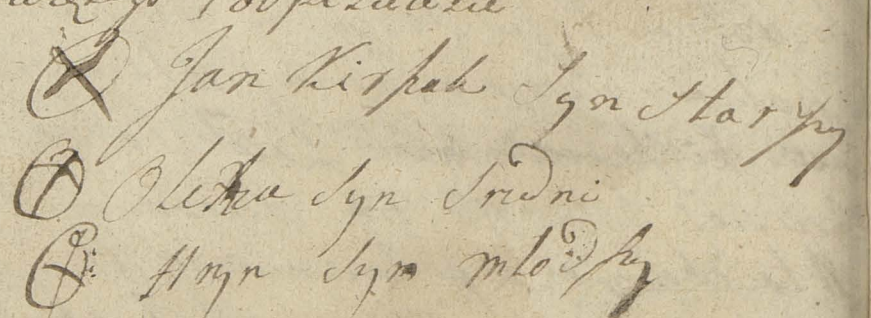 Jan Kirpak Syn Starszy
Olexa Syn Sredni
Hryn Syn młodszy